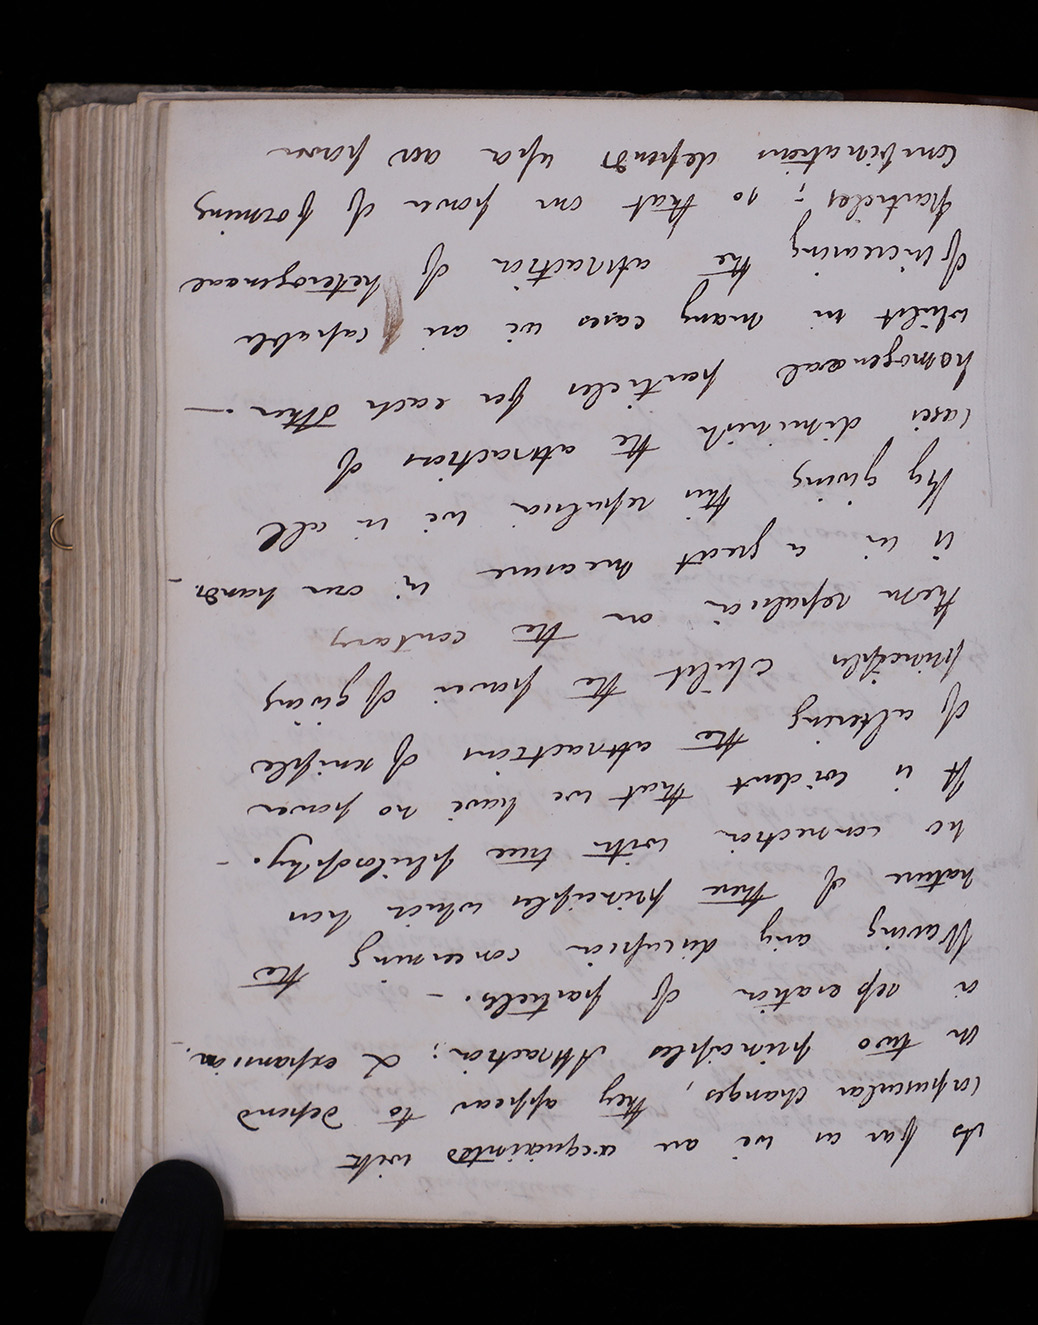 As far as we are acquainted with
corpuscular changes, they appear to depend
on two principles Attraction; & expansion.
or seperation of particles. –
Waving any discussion concerning the
nature of these principles which has
no connection with true philosophy. –
It is evident that we have no power
of altering the attractions of simple
principles whilst the power of giving
them repulsion on the contrary
is in a great measure in our hands. –
By giving this repulsion we in all
cases diminish the attractions of
homogeneal particles for each other. –
whilst in many cases we are capable
of increasing the attraction of heterogeneal
particles; so that our power of forming
combinations depends upon our power